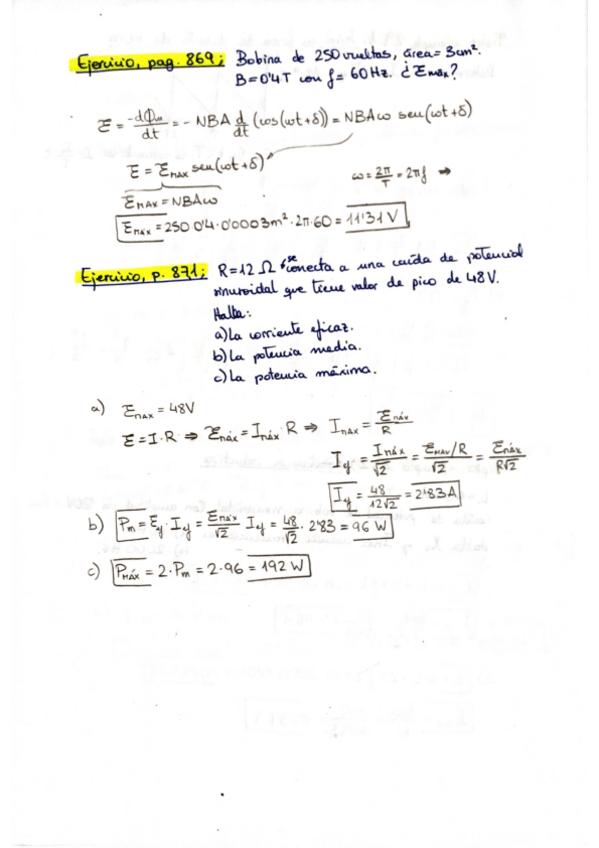 Ejercicio, pag. 869; Bobina de 250 vueltas, área = 3cm².
B = 0'4T con f = 60Hz. ¿Ɛmax?
Ɛ = -dΦm/dt = - NBA d/dt (cos(ωt+δ)) = NBAω sen(ωt+δ)
Ɛ = ƐMAX sen(ωt+δ)
ω = 2π/T = 2πf →
ƐMAX = NBAω
ƐMÁX = 250·0'4·0'0003m²·2π·60 = 11'31 V
Ejercicio, p. 871; R = 12 Ω se conecta a una caída de potencial
sinusoidal que tiene valor de pico de 48V.
Halla:
a) La corriente eficaz.
b) La potencia media.
c) La potencia máxima.
a) ƐMAX = 48V
Ɛ = I·R ⇒ Ɛmáx = Imáx·R ⇒ IMAX = Ɛmáx/R
Ief = Imáx/√2 = (ƐMAX/R)/√2 = Ɛmáx/R√2
Ief = 48/12√2 = 2'83A
b) Pm = Ɛef · Ief = Ɛmáx/√2 Ief = 48/√2 · 2'83 = 96 W
c) PMÁX = 2·Pm = 2·96 = 192 W